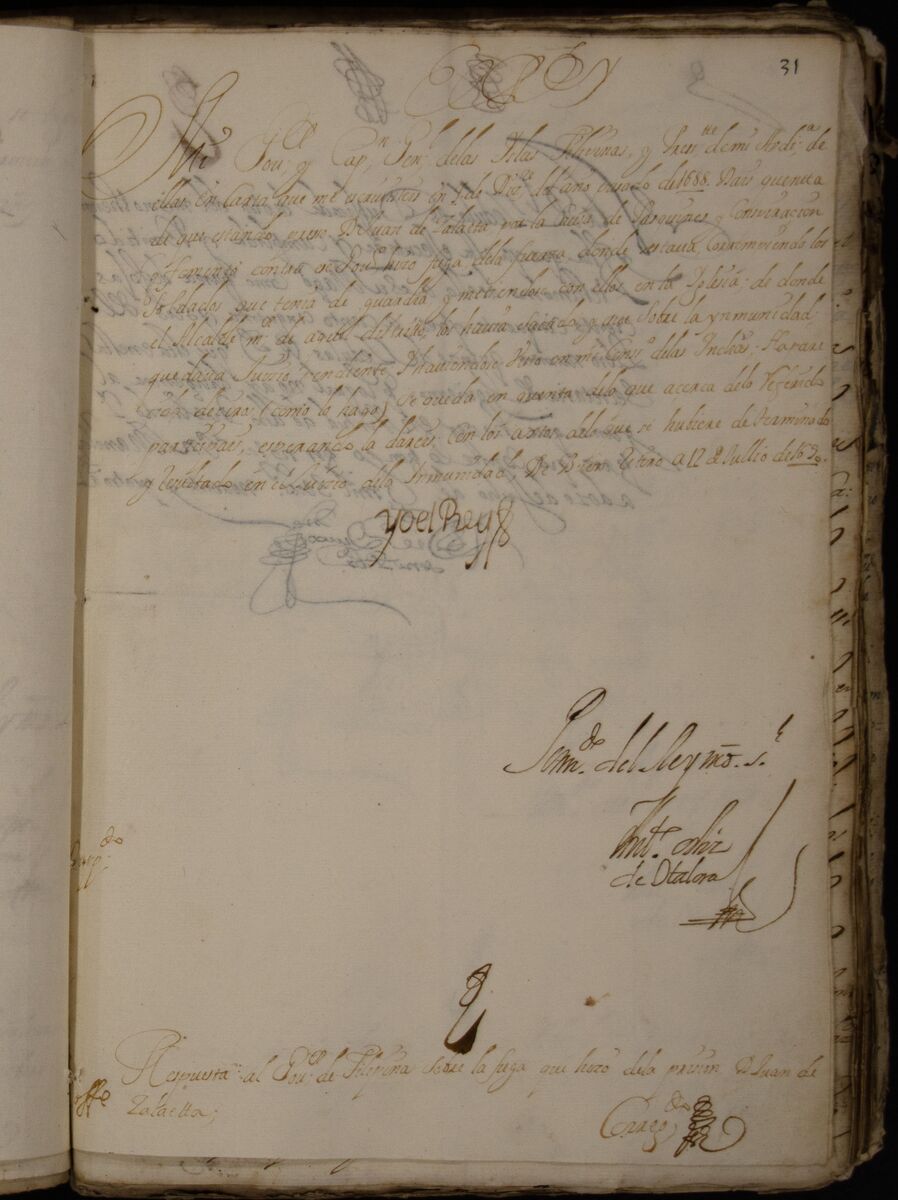 31
El Rey
Mi Gou.or y Cap.n Gen.l delas Islas Philipinas, y Pres.te de mi Audi.a de
ellas, en carta que me escriuisteis en de Dic.re del año passado de 1688. Dais quenta
de que estando preso D. Juan de Zalaeta por la causa de Pasquines y Conspiracion
q fomentó contra ese Gou.no hizo fuga dela fuerza donde estaua, Conmoviendo los
Soldados que tenia de guardia y metiendose con ellos en la Iglesia: de donde
el Alcalde m.or de aquel distrito los hauia sacado, y que sobre la ynmunidad
quedaua Juicio pendiente. Y hauiendose visto en mi Cons.o delas Indias, Ha parecido
deciros (como lo hago) se queda en quenta delo que acerca delo referido
participais, esperando la dareis con los autos delo que se hubiere determinado
y resultado en el Juicio dela Inmunidad. De Buen Retiro a 12 de Jullio de 1690.
Yo el Rey
Por m.do del Rey nro. s.r
Ant.o Ortiz
de Otalora
Respuesta al Gou.or de Philipinas sobre la fuga que hizo dela prision D. Juan de
Zalaetta;
Correg.do